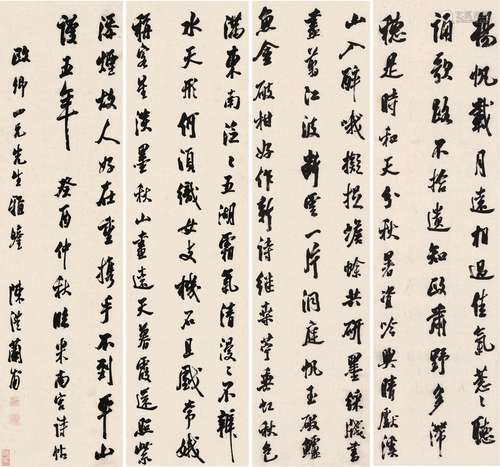 揚帆載月遠相過佳氣葱〻聽
誦歌路不拾遺知政肅野多滯
穗是時和天分秋暑資吟興晴獻溪
山入醉哦擬捉蟾蜍共研墨綵牋書
盡翦江波斷雲一片洞庭帆玉破鱸
魚金破柑好作新詩繼桑苧垂虹秋色
滿東南泛〻五湖霜氣清漫〻不辨
水天形何須織女支機石且戲常娥
稱客星淡墨秋山畫遠天暮霞還照紫
添煙故人好在重攜手不到平山
謾五年 癸酉仲秋臨米南宮詩帖
政卿四兄先生雅鑒 陳澧蘭甫